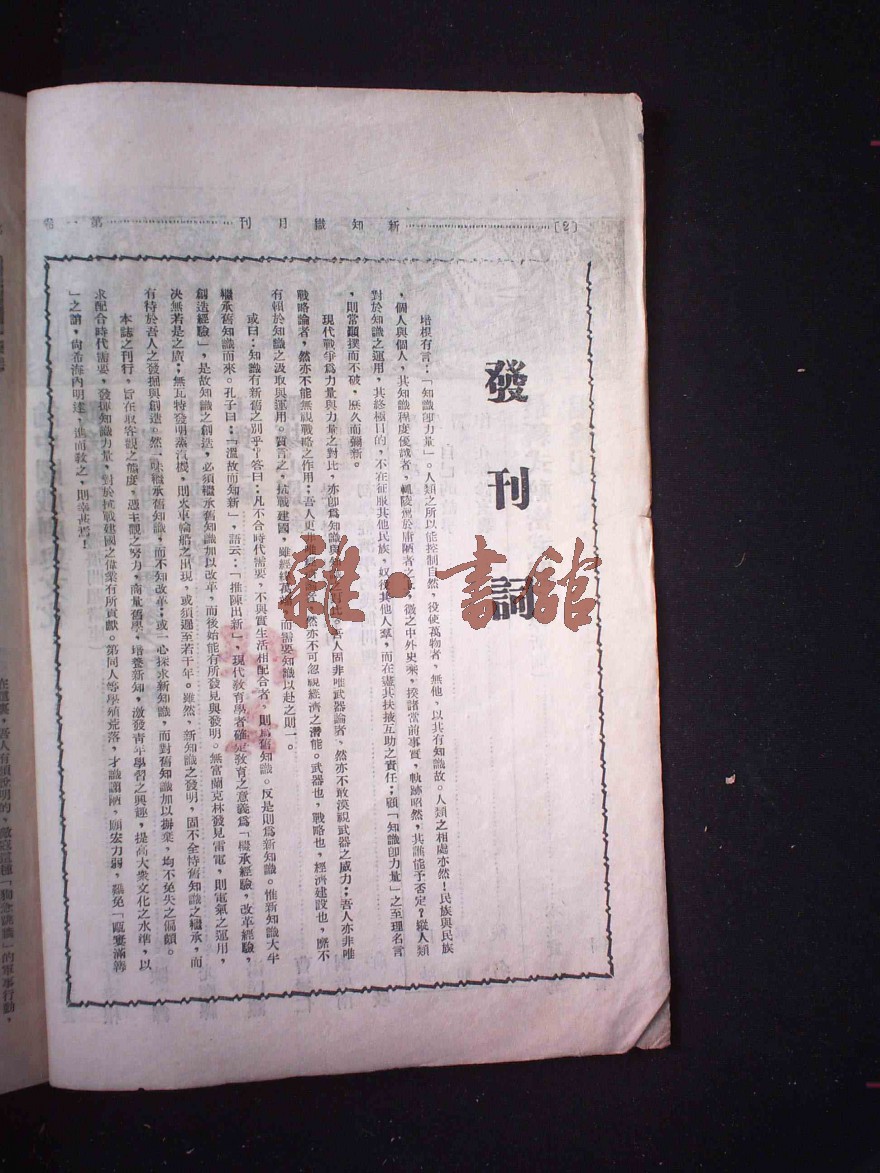 (2)……新知識月刊……第一
發刊詞
培根有言：「知識即力量」。人類之所以能控制自然，役使萬物者，無他，以其有知識故。人類之相處亦然！民族與民族
，個人與個人，其知識程度優識者，輒陵駕於庸陋者之上，徵之中外史乘，揆諸當前事實，軌跡昭然，其誰能予否定？縱人類
對於知識之運用，其終極目的，不在征服其他民族，奴役其他人羣，而在盡其扶掖互助之責任；顧「知識即力量」之至理名言
，則常顚撲而不破，歷久而彌新。
現代戰爭爲力量與力量之對比，亦即爲知識與知識之對比。吾人固非唯武器論者、然亦不敢漠視武器之威力；吾人亦非唯
戰略論者，然亦不能無視戰略之作用；吾人更非唯經濟論者，然亦不可忽視經濟之潛能。武器也，戰略也，經濟建設也，靡不
有賴於知識之汲取與運用。質言之，抗戰建國，雖經緯萬端，而需要知識以赴之則一。
或曰：知識有新舊之別乎？答曰：凡不合時代需要，不與實生活相配合者，則爲舊知識。反是則爲新知識。惟新知識大半
繼承舊知識而來。孔子曰：「溫故而知新」，語云：「推陳出新」，現代教育學者確定教育之意義爲「繼承經驗，改革經驗，
創造經驗」，是故知識之創造，必須繼承舊知識加以改革，而後始能有所發見與發明。無富蘭克林發見雷電，則電氣之運用，
決無若是之廣；無瓦特發明蒸汽機，則火車輪船之出現，或須遲至若干年。雖然，新知識之發明，固不全恃舊知識之繼承，而
有待於吾人之發掘與創造。然一味繼承舊知識，而不知改革；或一心探求新知識，而對舊知識加以摒棄，均不免失之偏頗。
本誌之刊行，旨在取客觀之態度，憑主觀之努力，商量舊學，培養新知，激發青年學習之興趣，提高大衆文化之水準，以
求配合時代需要，發揮知識力量，對於抗戰建國之偉業有所貢獻。第同人等學殖荒落，才識譾陋，願宏力弱，難免「
」之誚，尙希海內明達，進而教之，則幸甚焉！
雜·書館
在這裏，吾人有須說明的，
的軍事行動，